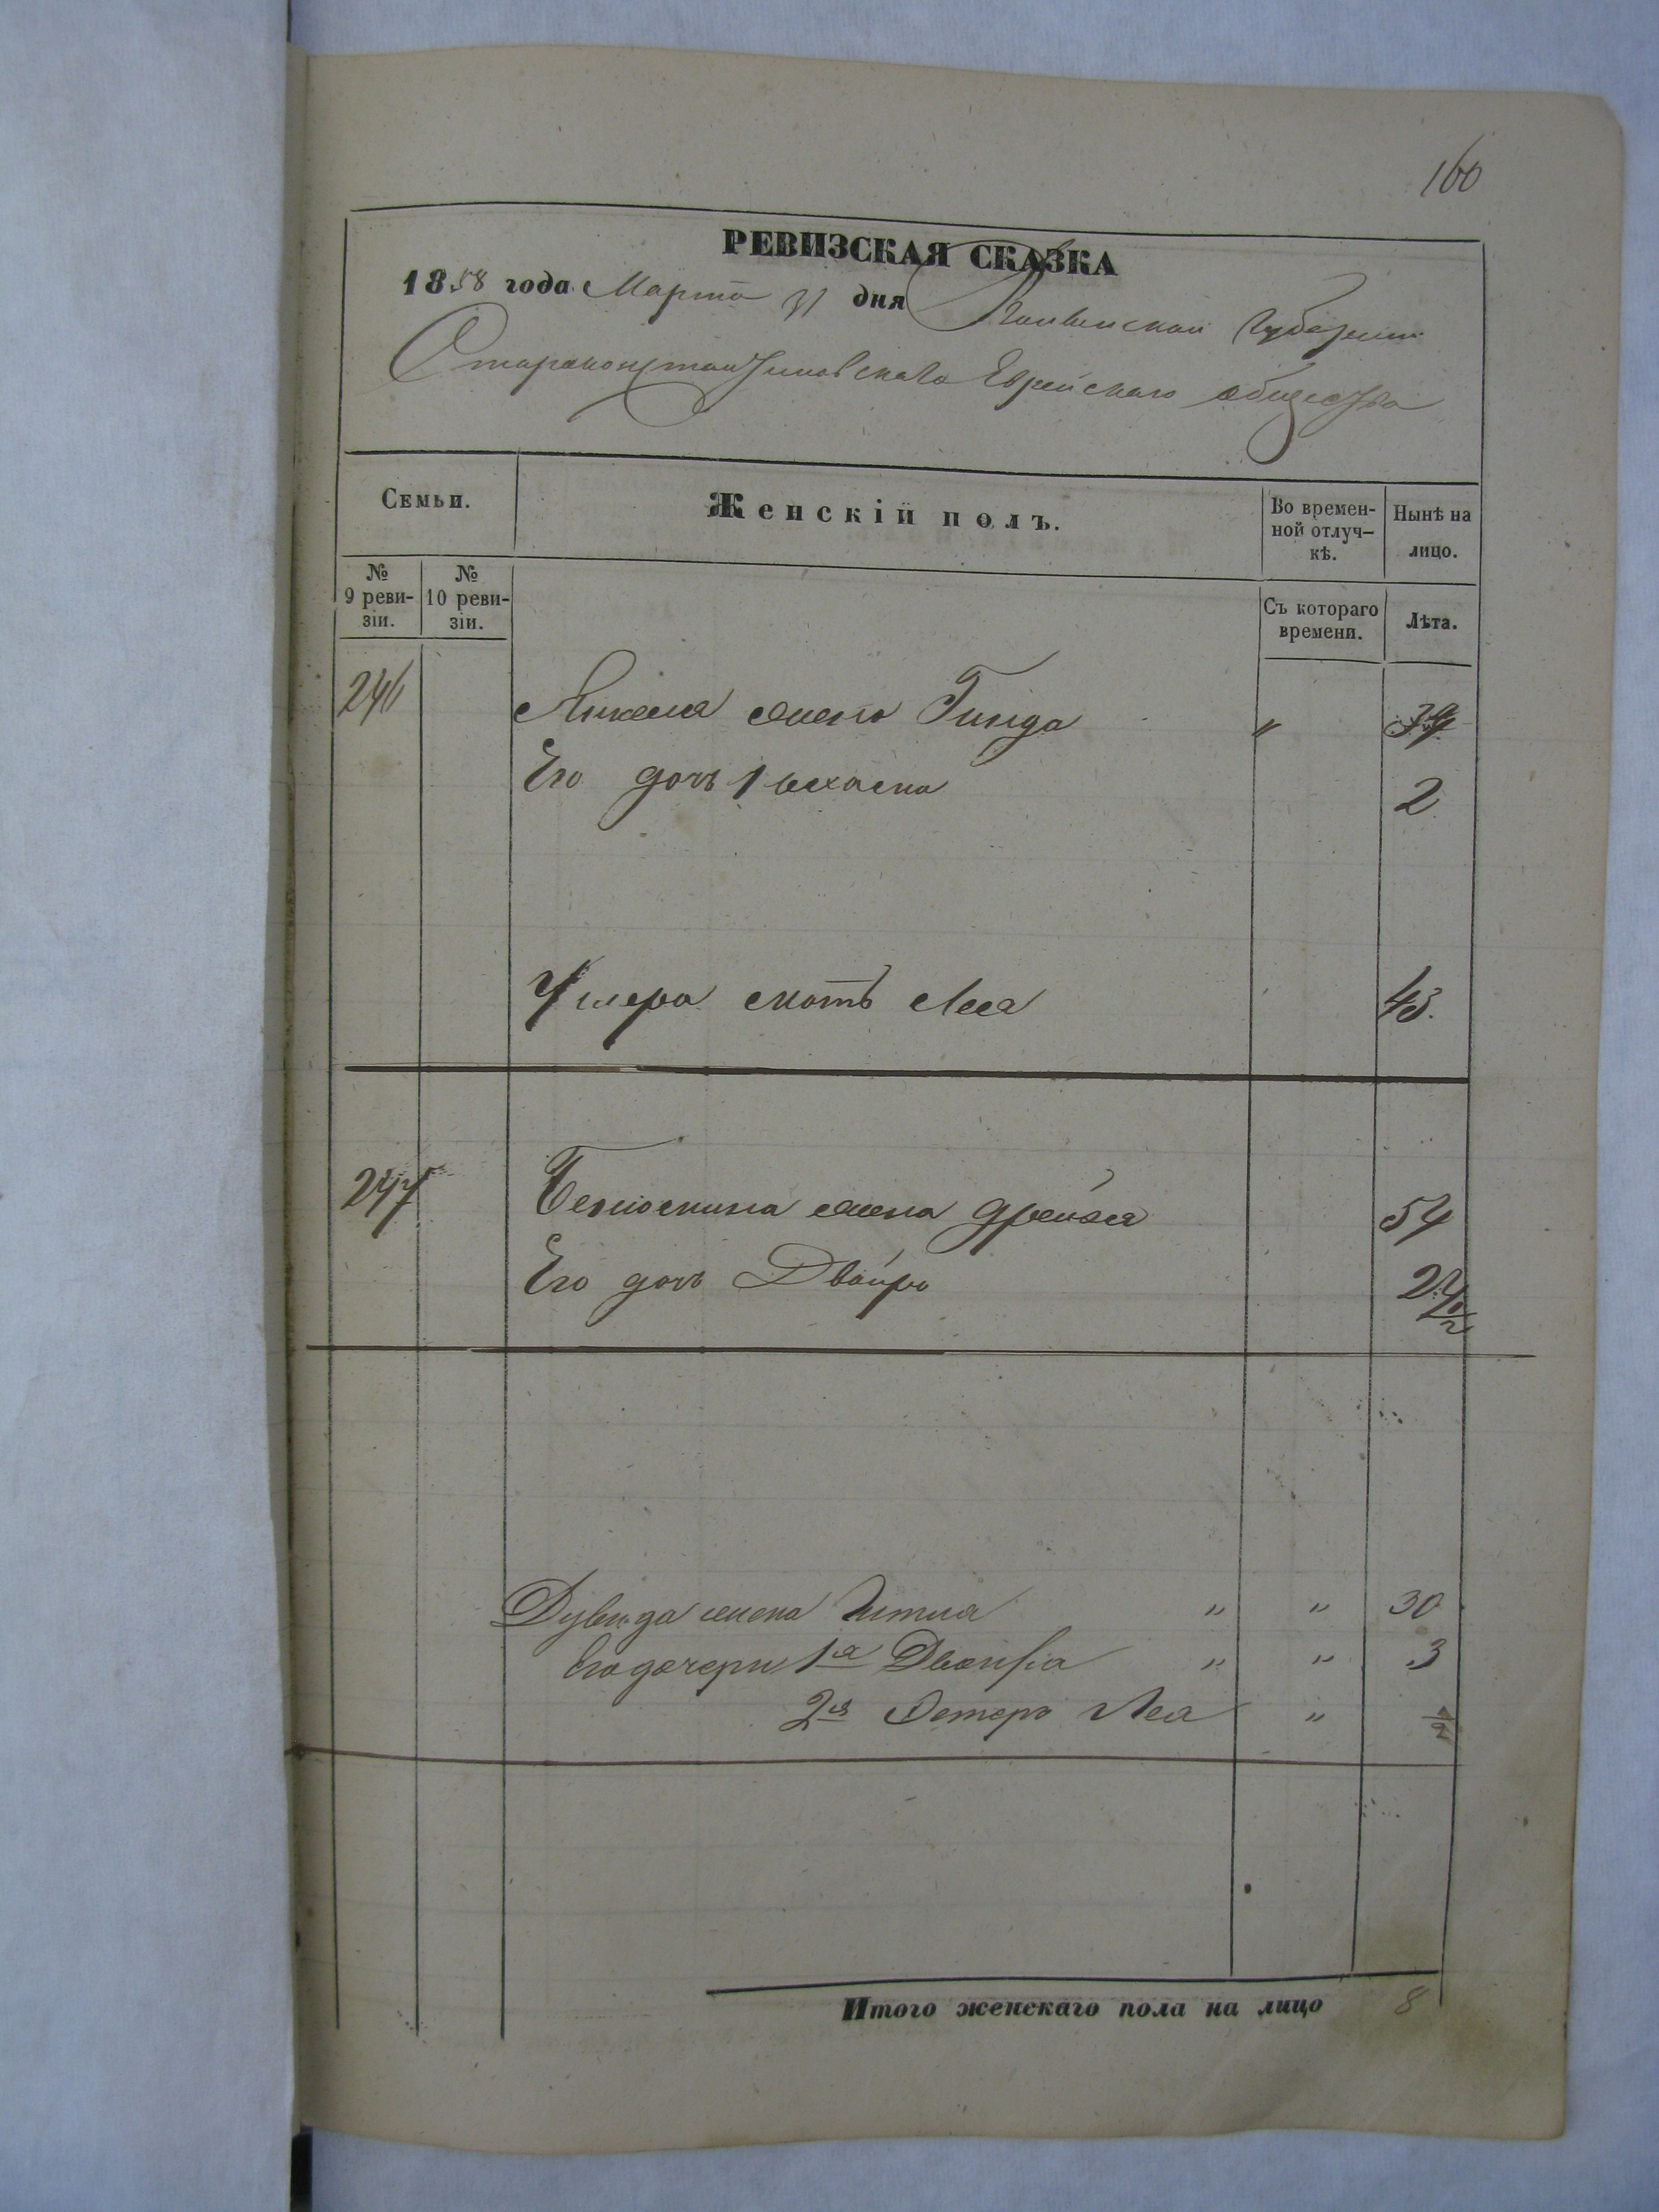 160
РЕВИЗСКАЯ СКАЗКА
1858 года Марта 31 дня Волынской Губернии
Староконстантиновскаго Еврейскаго общества
Семьи.
Женскій полъ.
Во времен-
ной отлуч-
кѣ.
Нынѣ на
лицо.
№
9 реви-
зіи.
№
10 реви-
зіи.
Съ котораго
времени.
Лѣта.
246 Янкеля жена Гинда " 39
Его дочь 2
Умера мать Лея 43.
247 жена Дрейзя 54
Его дочь Двойра
Дувида жена Гитля " " 30
Его дочери 1я Двойра " " 3
2я Эстеръ Лея " 1/2
Итого женскаго пола на лицо 8